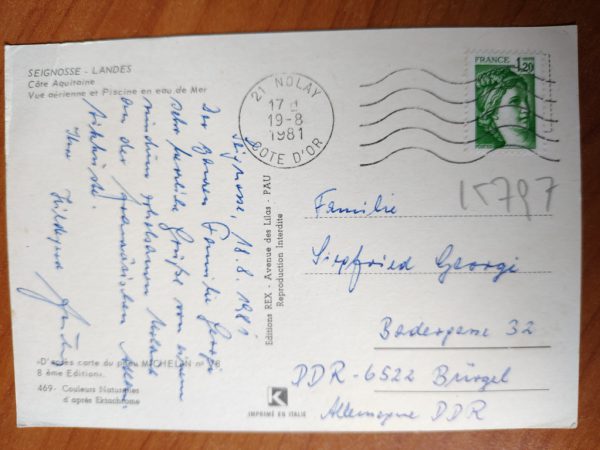 SEIGNOSSE - LANDES
Côte Aquitaine
Vue aérienne et Piscine en eau de Mer
Seignosse, 18.8.1981
Der ganzen Familie Georgi
sehr herzliche Grüße von einem
rundum erholsamen Urlaub
an der französischen Atlantik-
küste.
Ihre
«D'après carte du pneu MICHELIN n° 78
8 ème Edition».
469- Couleurs Naturelles
d'après Ektachrome
Editions REX - Avenue des Lilas - PAU
Reproduction Interdite
K
IMPRIMÉ EN ITALIE
21 NOLAY
17 H
19-8
1981
COTE D'OR
FRANCE
1,20
15797
Familie
Siegfried Georgi
Badergasse 32
DDR-6522 Bürgel
Allemagne DDR